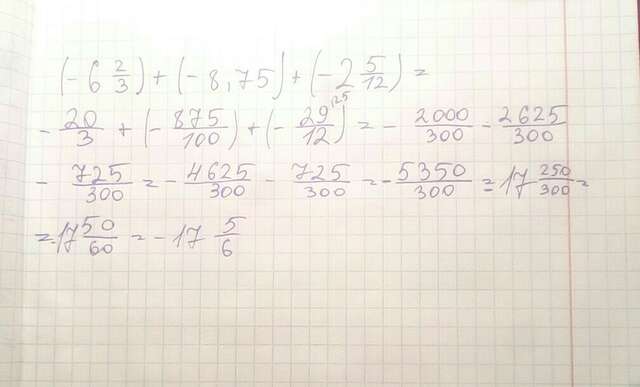 (-6 2/3) + (-8,75) + (-2 5/12) =
- 20/3 + (- 875/100) + (- 29/12)^125 = - 2000/300 - 2625/300
- 725/300 = - 4625/300 - 725/300 = - 5350/300 = 17 250/300 =
= -17 50/60 = - 17 5/6